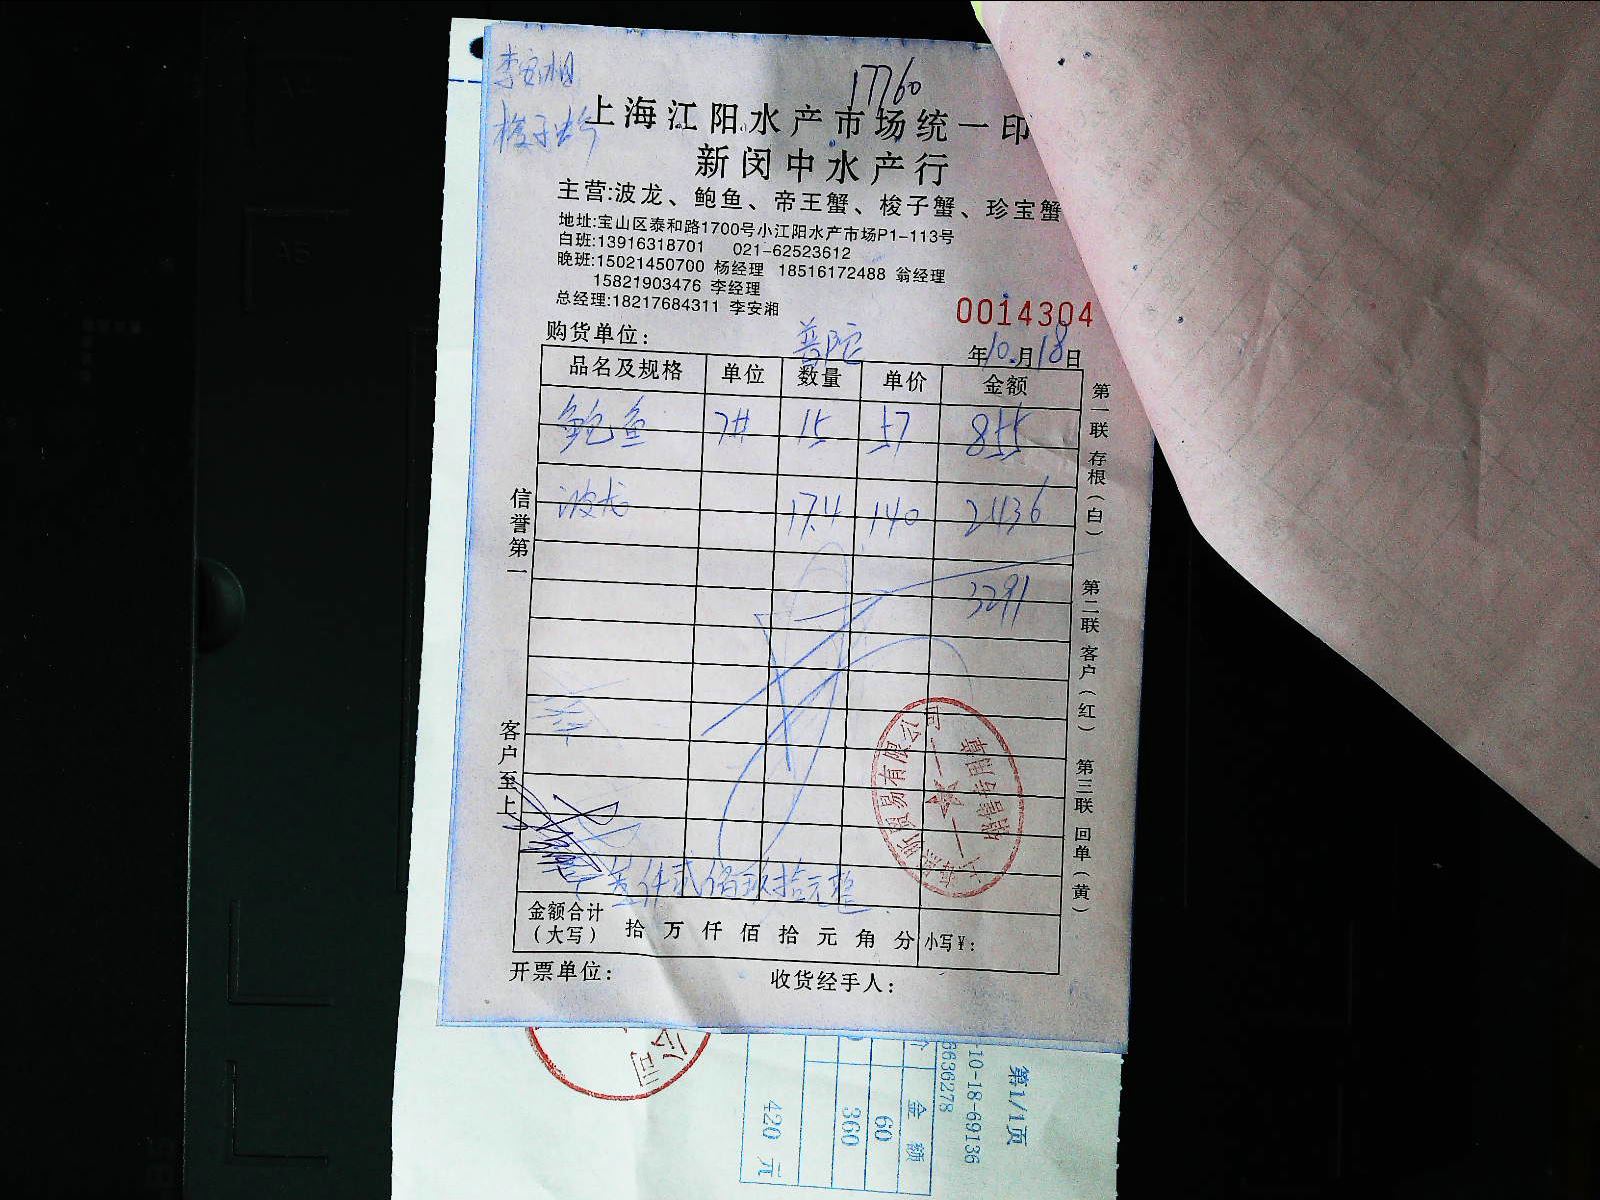 李安湘
17760
梭子蟹
上海江阳水产市场统一印
新闵中水产行
主营:波龙、鲍鱼、帝王蟹、梭子蟹、珍宝蟹
地址:宝山区泰和路1700号小江阳水产市场P1-113号
白班:13916318701 021-62523612
晚班:15021450700 杨经理 18516172488 翁经理
15821903476 李经理
总经理:18217684311 李安湘
0014304
购货单位: 普陀 年10.月18日
品名及规格 单位 数量 单价 金额
鲍鱼 7# 15 57 855
波龙 17.4 140 2436
3291
信誉第一
客户至上
第一联 存根(白) 第二联 客户(红) 第三联 回单(黄)
贸易有限公司
销售专用章
仟贰佰玖拾元整
金额合计
(大写) 拾 万 仟 佰 拾 元 角 分 小写¥:
开票单位: 收货经手人:
公司
第1/1页
-10-18-69136
6636278
金额
60
360
420 元